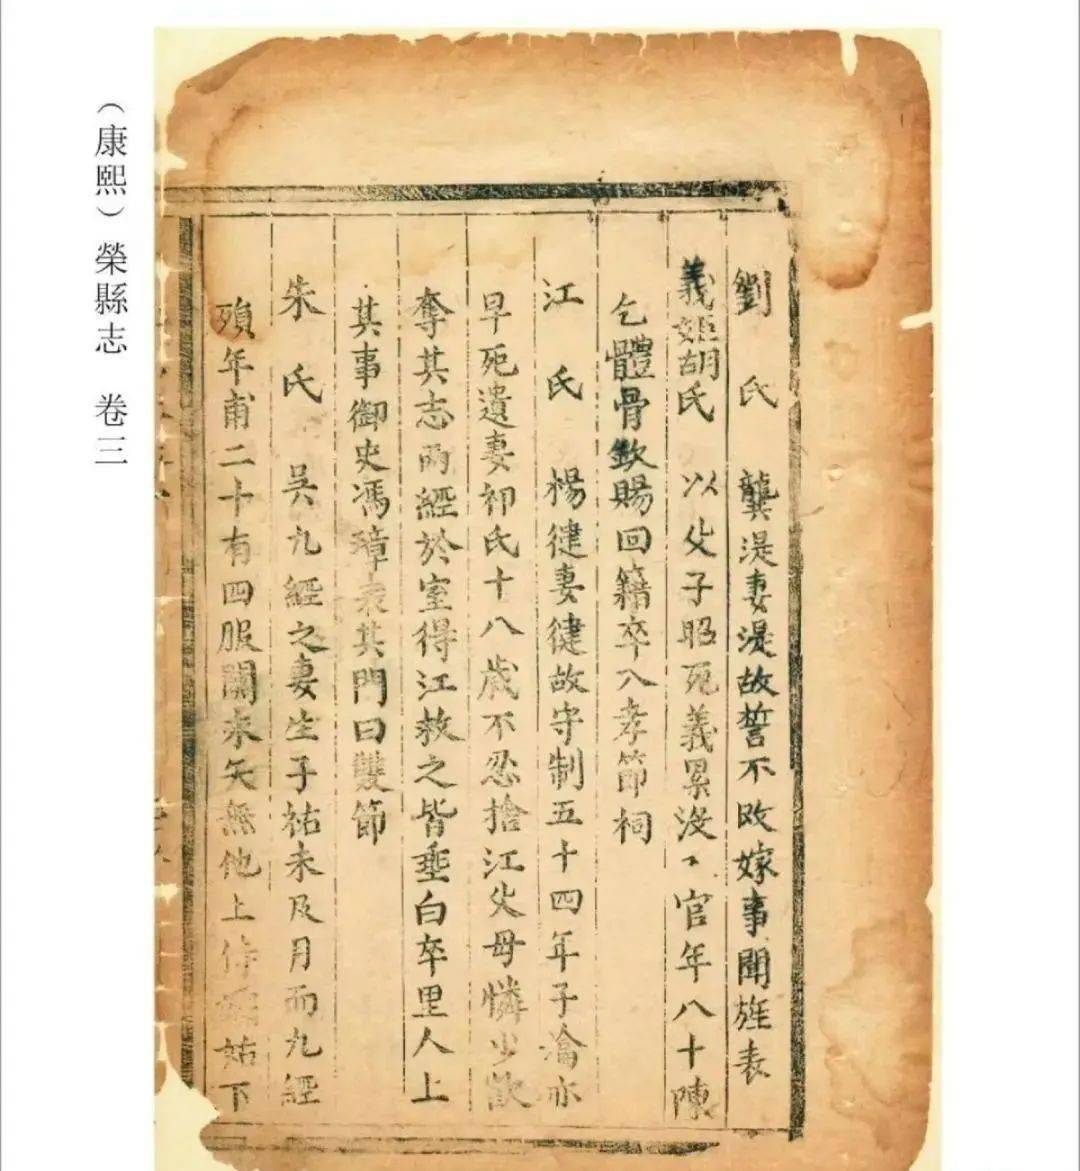 劉氏 龔湜妻湜故誓不改嫁事聞旌表
義姬胡氏 以父子昭死義累没丶官年八十陳
乞體骨欽賜回籍卒入孝節祠
江氏 楊徤妻徤故守制五十四年子瀹亦
早死遺妻祁氏十八歲不忍捨江父母憐少欲
奪其志兩經於室得江救之皆垂白卒里人上
其事御史馮璋表其門曰雙節
朱氏 吳九經之妻生子祐未及月而九經
殞年甫二十有四服闋來矢無他上侍姑下
（康熙）榮縣志 卷三